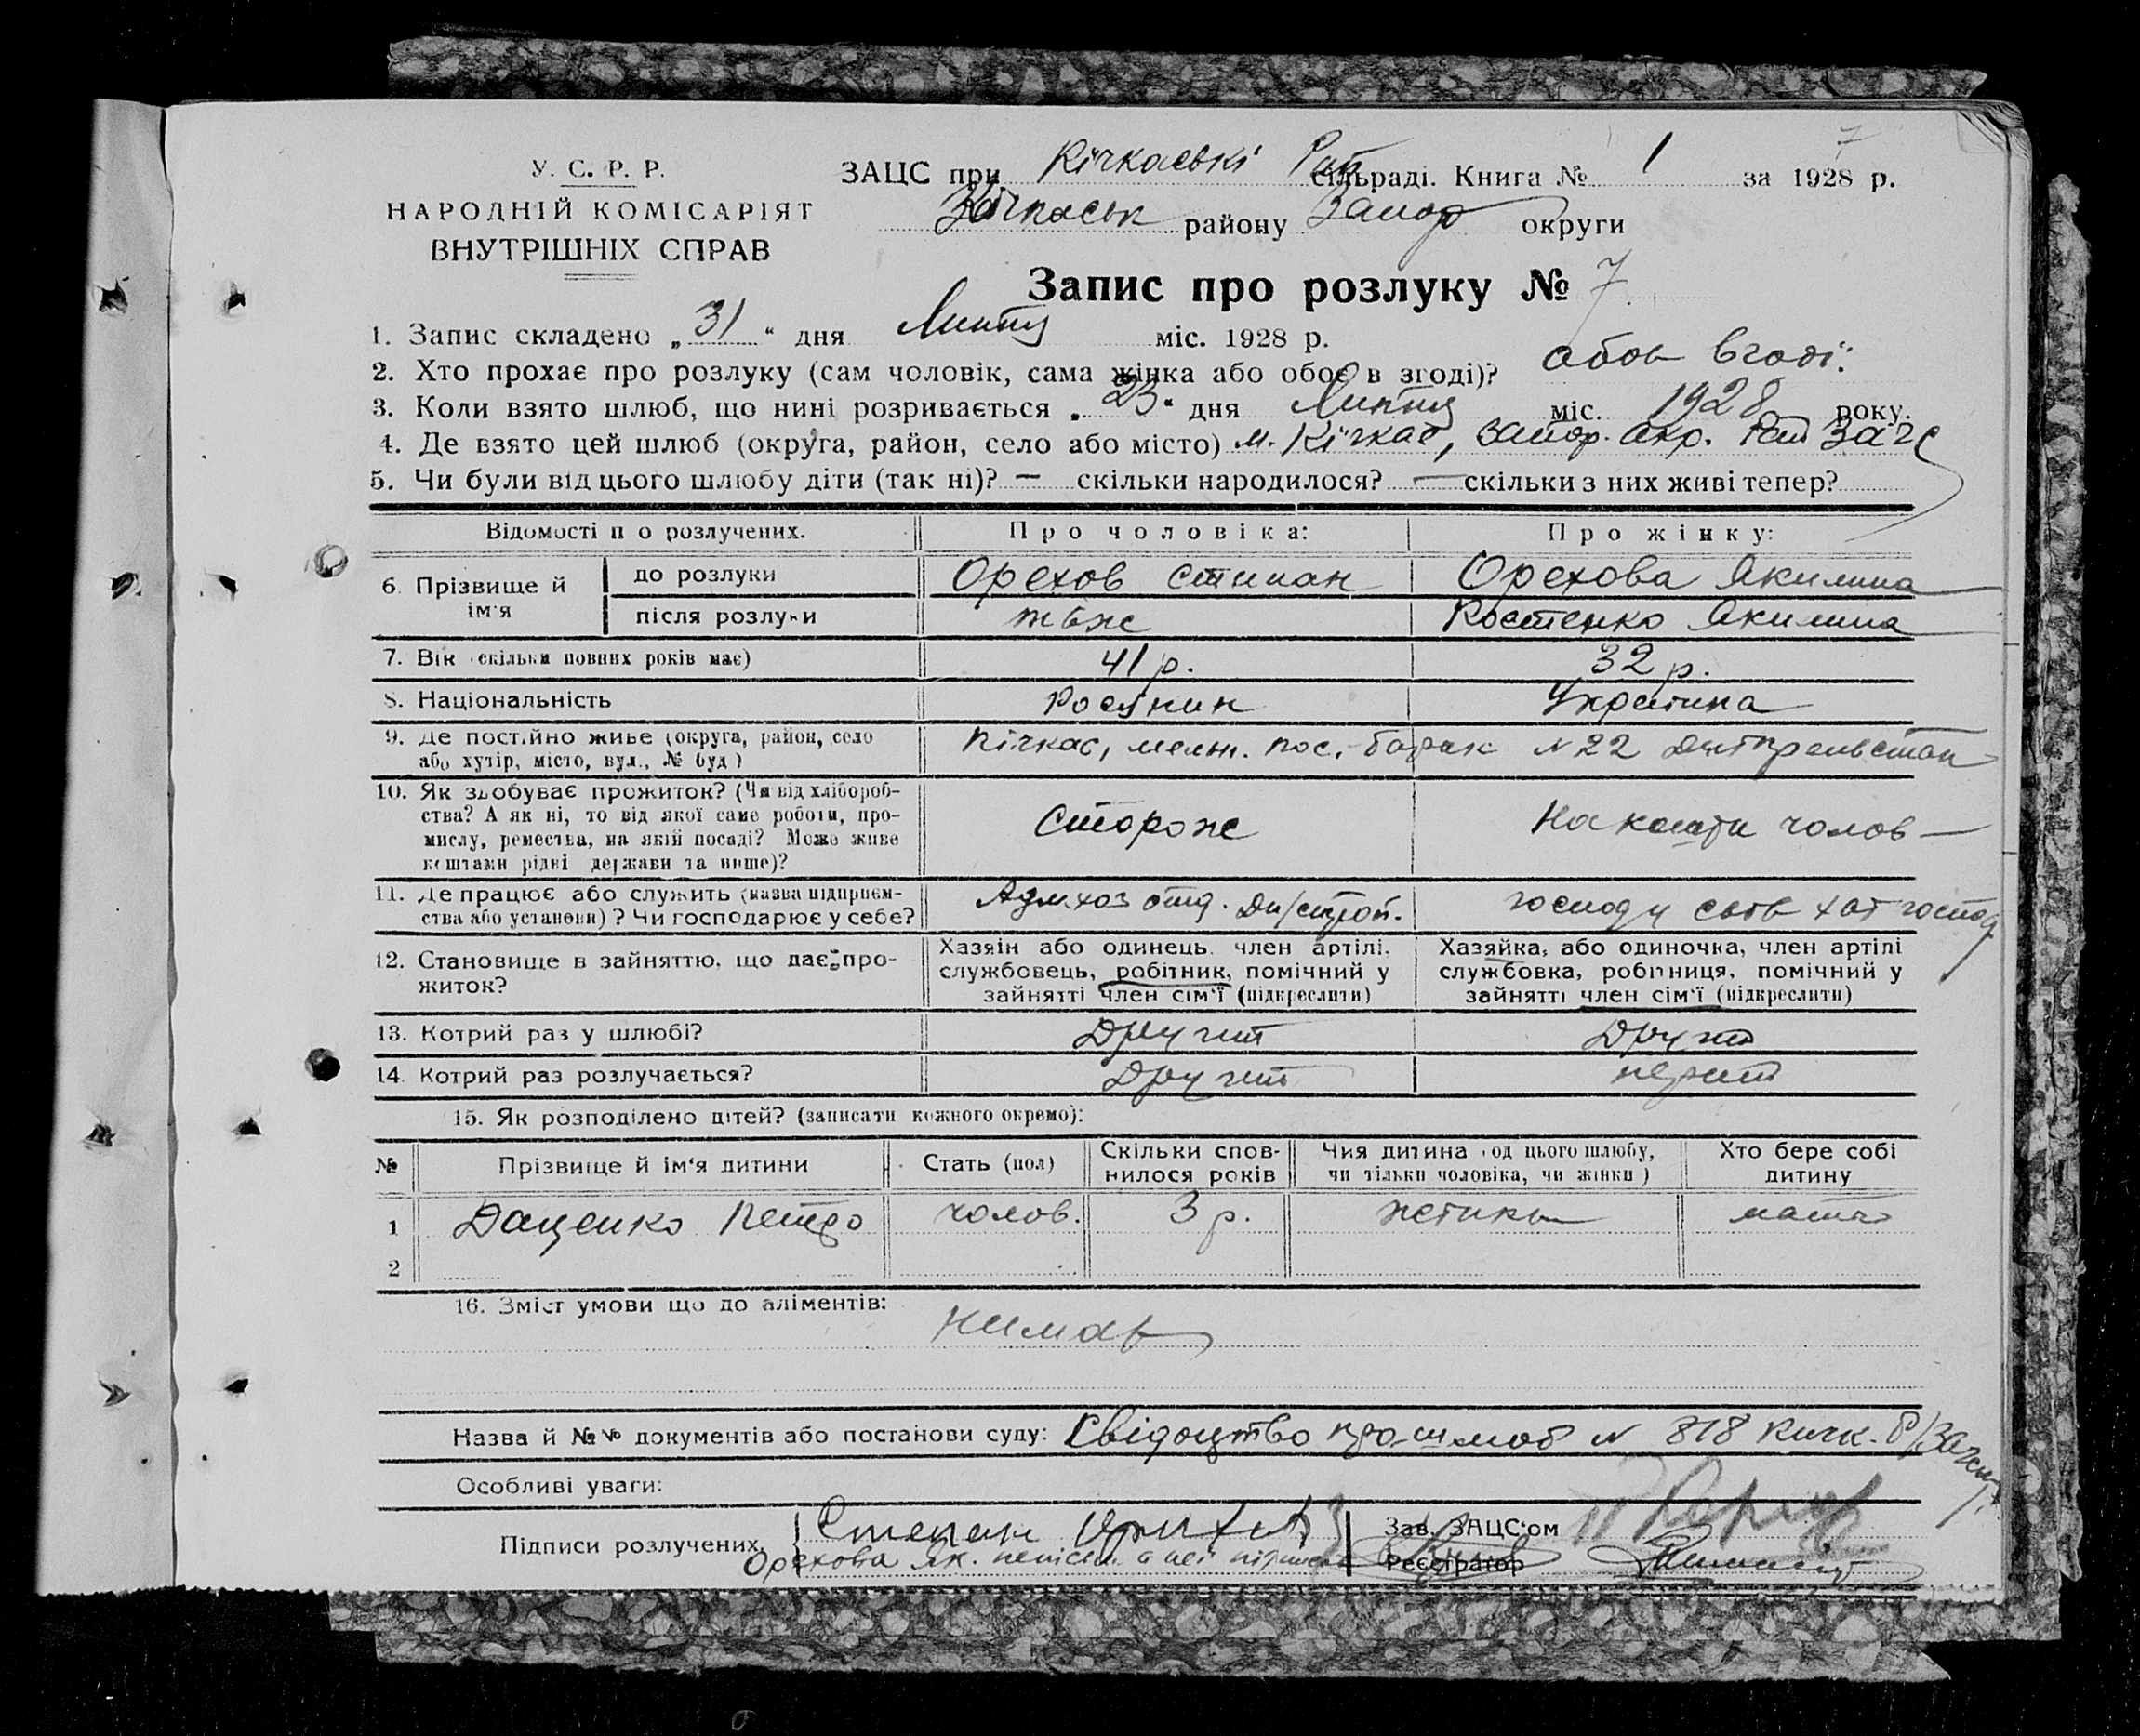 7
У. С. Р. Р.
НАРОДНІЙ КОМІСАРІЯТ
ВНУТРІШНІХ СПРАВ
ЗАЦС при Кічкаські Рай сільраді. Книга № 1 за 1928 р.
Кічкаськ району Запор округи
Запис про розлуку № 7
1. Запис складено „31“ дня Липня міс. 1928 р.
2. Хто прохає про розлуку (сам чоловік, сама жінка або обоє в згоді)? обоє в годі.
3. Коли взято шлюб, що нині розривається „23“ дня Липня міс. 1928 року.
4. Де взято цей шлюб (округа, район, село або місто) м. Кічкас, Запор. окр. Рай Загс
5. Чи були від цього шлюбу діти (так ні)? — скільки народилося? — скільки з них живі тепер?
Відомості п о розлучених. Про чоловіка: Про жінку:
6. Прізвище й ім'я до розлуки Орехов Стипан Орехова Якилина
після розлуки тьже Костенко Якилина
7. Вік (скільки повних років має) 41 р. 32 р.
8. Національність Росянин Українка
9. Де постійно живе (округа, район, село або хутір, місто, вул., № буд) Кічкас, менж. пос. барак N 22
10. Як здобуває прожиток? (Чи від хлібороб-
ства? А як ні, то від якої саме роботи, про-
мислу, ремества, на якій посаді? Може живе
коштами рідні держави та инше)? Сторож На кошти чолов
11. Де працює або служить (назва підприєм-
ства або установи)? Чи господарює у себе? Адмхоз отд. Дн/строй.
12. Становище в зайняттю, що дає про-
житок? Хазяїн або одинець, член артілі,
службовець, робітник, помічний у
зайнятті член сім'ї (підкреслити)
Хазяйка, або одиночка, член артілі
службовка, робітниця, помічний у
зайнятті член сім'ї (підкреслити)
13. Котрий раз у шлюбі? Другий Другий
14. Котрий раз розлучається? Другий перший
15. Як розподілено дітей? (записати кожного окремо):
№ Прізвище й ім'я дитини Стать (пол) Скільки спов-
нилося років Чия дитина (од цього шлюбу,
чи тільки чоловіка, чи жінки) Хто бере собі
дитину
1 Даценко Петро чолов. 3 р. жінки мати
2
16. Зміст умови що до аліментів: Нимає
Назва й №№ документів або постанови суду: Свідоцтво про шлюб N 818 Кичк. Р/Загсу
Особливі уваги:
Підписи розлучених. Степан Орехов Зав. ЗАЦС'ом
Орехова Як. Реєстратор